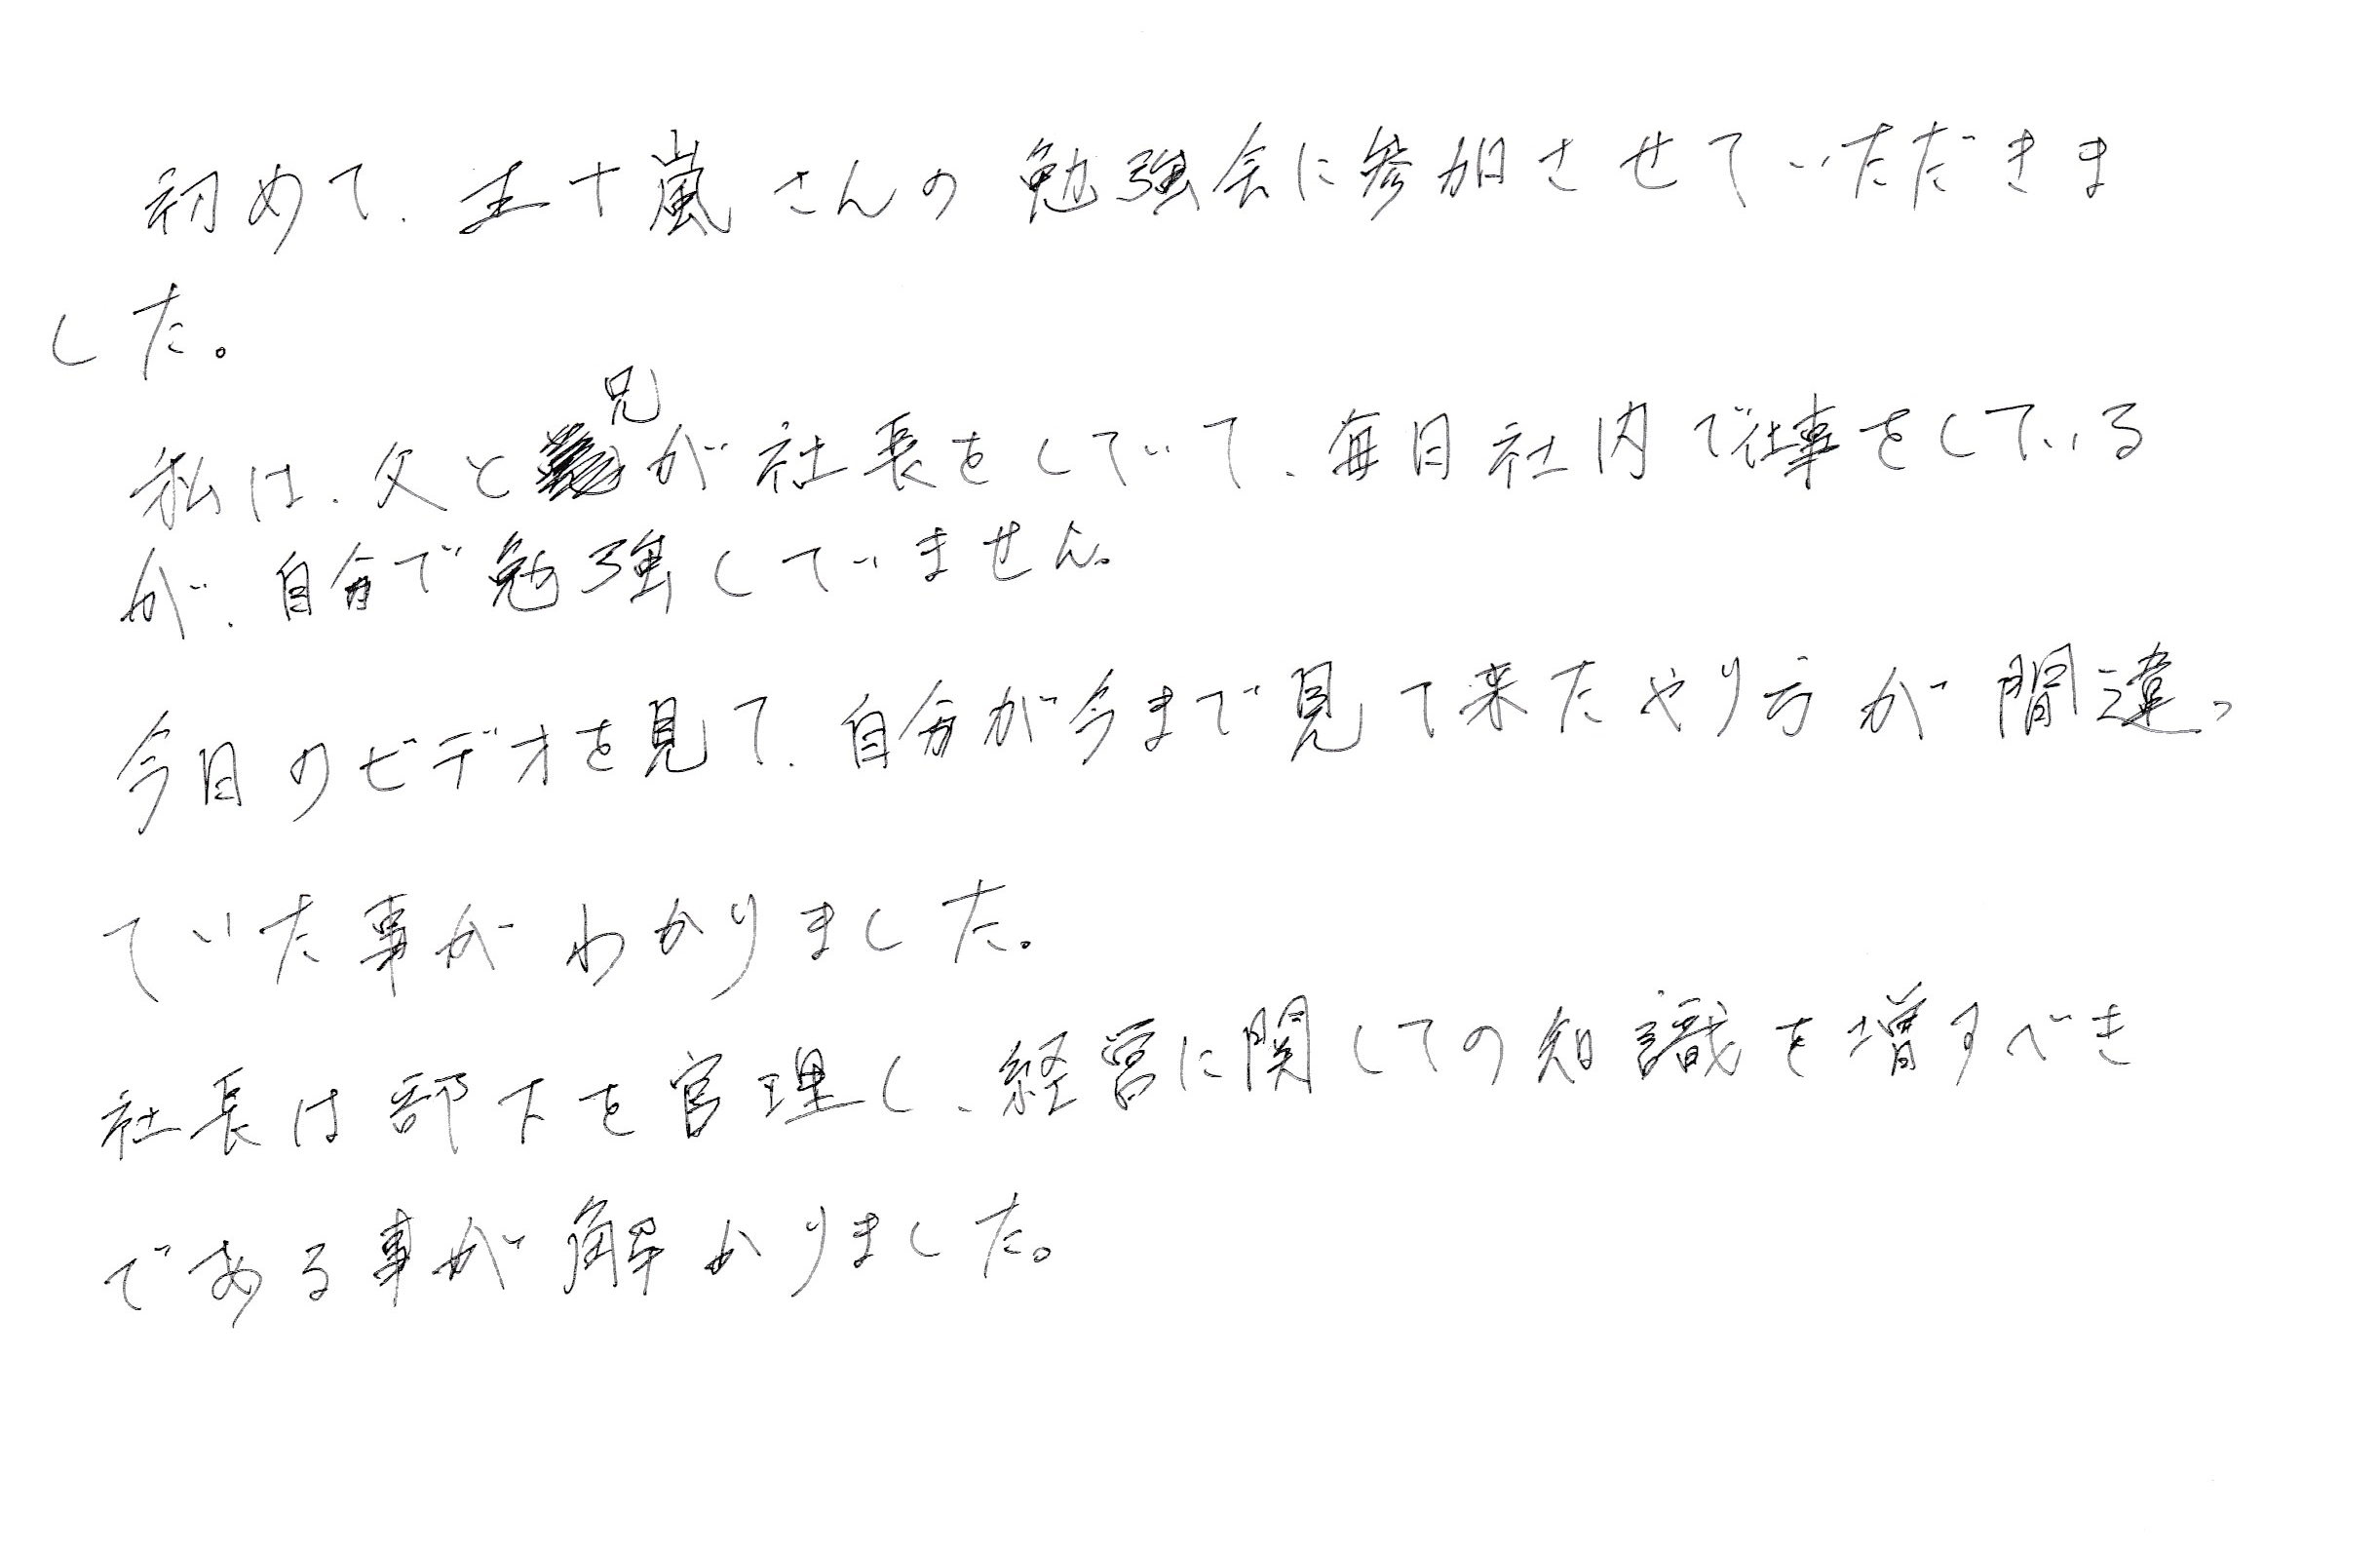 初めて、五十嵐さんの勉強会に参加させていただきま
した。
私は、父と兄が社長をしていて、毎日社内で仕事をしている
が、自分で勉強していません。
今日のビデオを見て、自分が今まで見て来たやり方が間違っ
ていた事がわかりました。
社長は部下を官理し、経営に関しての知識を増すべき
である事が解かりました。